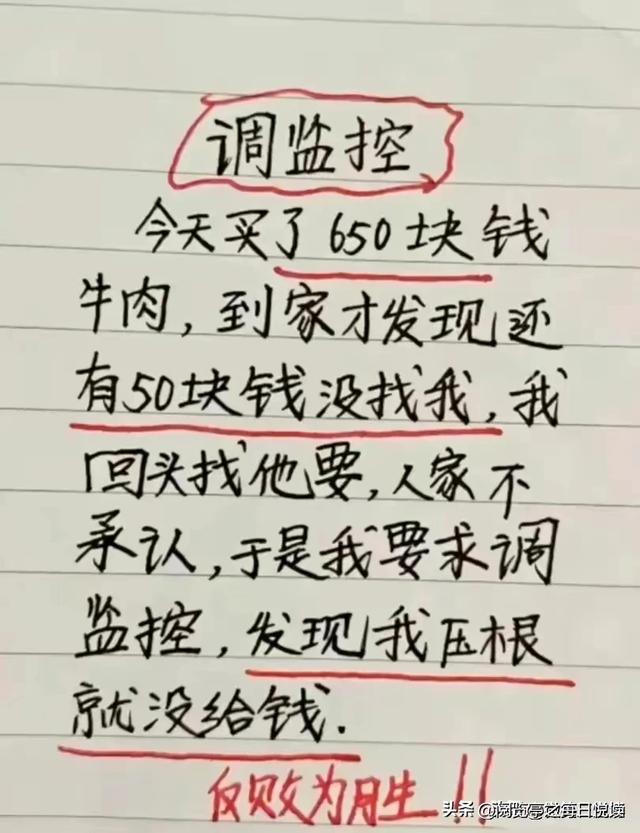 调监控
今天买了650块钱
牛肉，到家才发现还
有50块钱没找我，我
回头找他要，人家不
承认，于是我要求调
监控，发现我压根
就没给钱.
反败为胜!!
头条